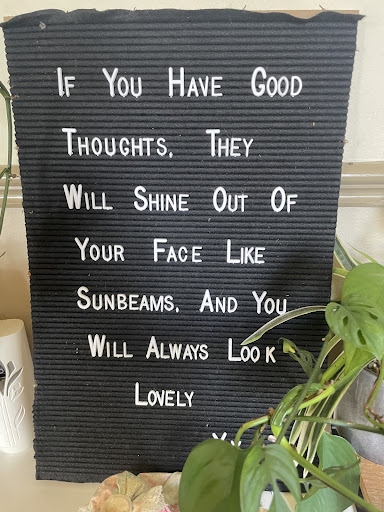 If You Have Good
Thoughts. They
Will Shine Out Of
Your Face Like
Sunbeams. And You
Will Always Look
Lovely